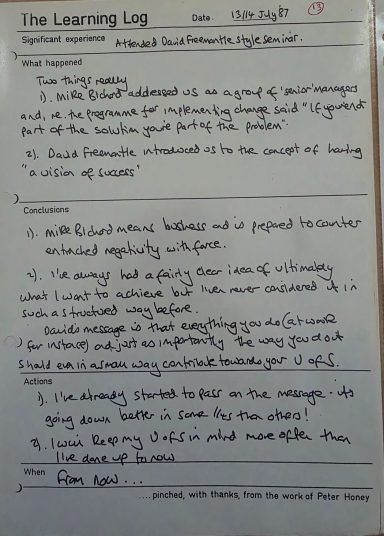 The Learning Log Date 13/14 July 87 13
Significant experience Attended David Freemantle style seminar.
What happened
Two things really
1). Mike Bichard addressed us as a group of 'senior' managers
and, re. the programme for implementing change said "If you're not
part of the solution you're part of the problem".
2). David Freemantle introduced us to the concept of having
"a vision of success"
Conclusions
1). Mike Bichard means business and is prepared to counter
entrenched negativity with force.
2). I've always had a fairly clear idea of ultimately
what I want to achieve but I've never considered it in
such a structured way before.
David's message is that everything you do (at work
for instance) and just as importantly the way you do it
should even in a small way contribute towards your V of S.
Actions
1). I've already started to pass on the message - its
going down better in some than others!
2). I will keep my V of S in mind more often than
I've done up to now
When From now...
....pinched, with thanks, from the work of Peter Honey